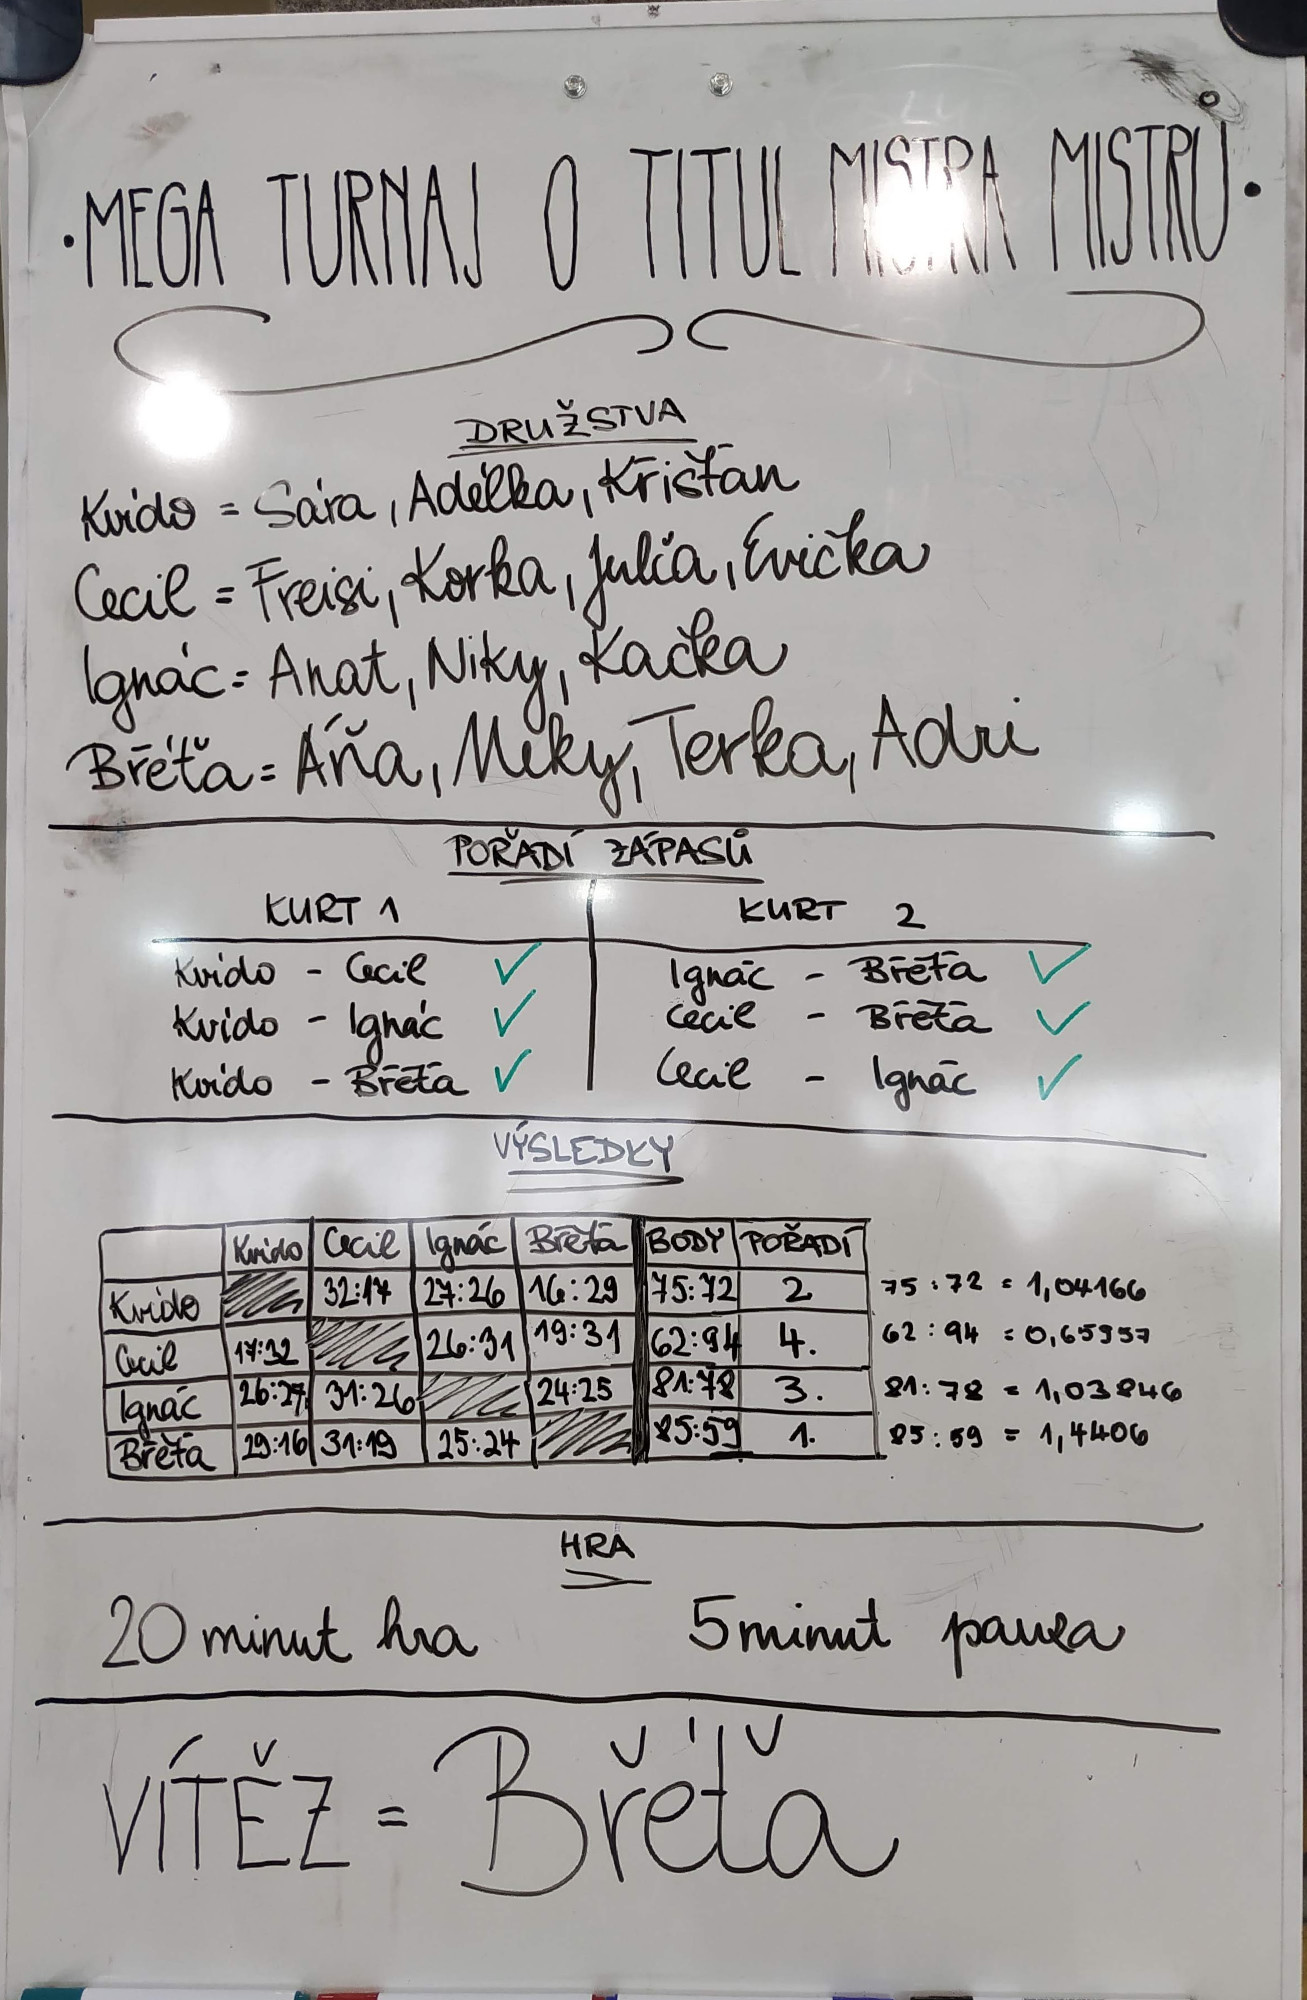 · MEGA TURNAJ O TITUL MISTRA MISTRŮ ·
DRUŽSTVA
Kvido = Sára, Adélka, Křišťan
Cecil = Freisi, Korka, Julča, Evička
Ignác = Anat, Niky, Kačka
Břéťa = Áňa, Miky, Terka, Adri
POŘADÍ ZÁPASŮ
KURT 1 KURT 2
Kvido - Cecil ✓ Ignác - Břéťa ✓
Kvido - Ignác ✓ Cecil - Břéťa ✓
Kvido - Břéťa ✓ Cecil - Ignác ✓
VÝSLEDKY
Kvido Cecil Ignác Břéťa BODY POŘADÍ
Kvido 32:17 27:26 16:29 75:72 2 75:72 = 1,04166
Cecil 17:32 26:31 19:31 62:94 4. 62:94 = 0,65957
Ignác 26:27 31:26 24:25 81:78 3. 81:78 = 1,03846
Břéťa 29:16 31:19 25:24 85:59 1. 85:59 = 1,4406
HRA
20 minut hra 5 minut pauza
VÍTĚZ = Břéťa